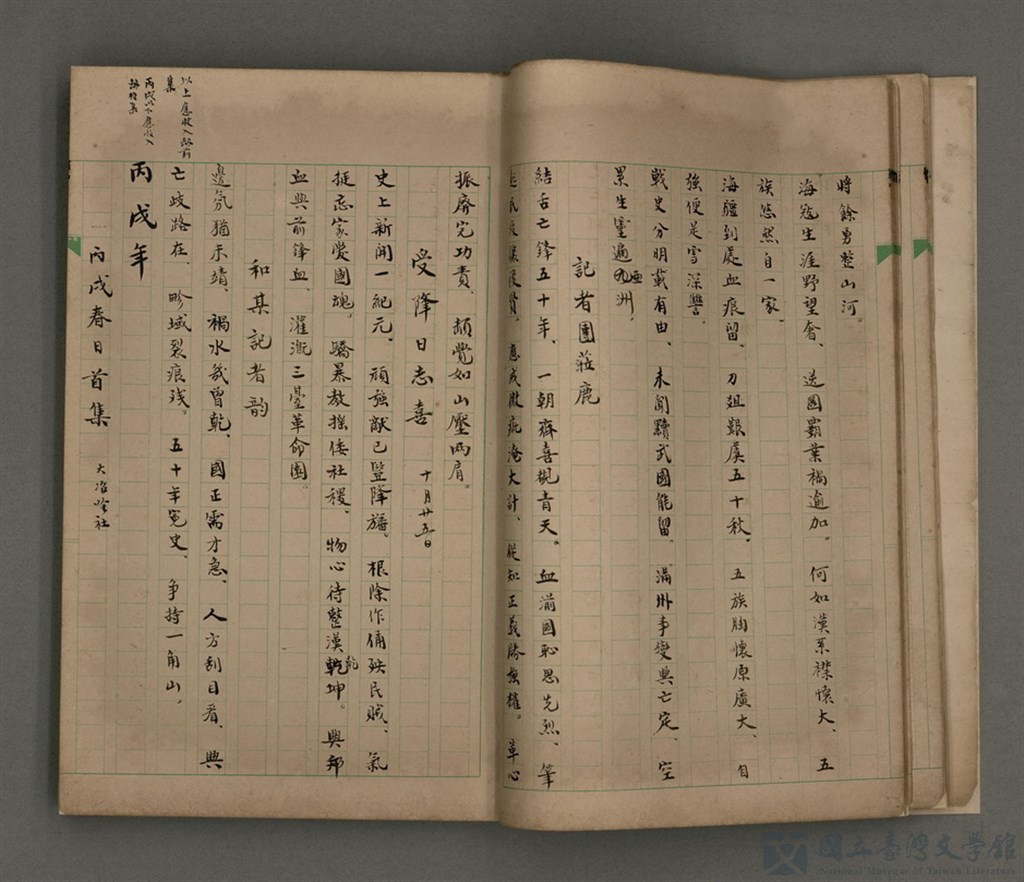 將餘勇整山河。
海寇生涯野望奢、送國霸業禍逾加。何如漢系襟懷大、五
族悠然自一家。
海疆到處血痕留。刀俎艱虞五十秋。五族胸懷原廣大、自
強便是雪深讐。
戰史分明載有由、未聞黷武國能留。滿州事變興亡定、空
累生靈遍亞洲。
記者團莅鹿
結舌亡鋒五十年、一朝齊喜覩青天。血湔國恥思先烈、筆
應成 大計、從知正義勝強權。草心
振廢完功責、頓覺如山壓兩肩。
受降日志喜 十月廿五日
史上新開一紀元。頑強猷已豎降旛。根除作俑殃民賊、氣
挺忘家愛國魂。驕暴教摧倭社稷。物心待整漢乾坤。興邦
血與前鋒血、灌溉三臺革命園。
和某記者韵
邊氛猶未靖、禍水幾曾乾、國正需才急、人方刮目看、興
亡歧路在、畛域裂痕殘。五十年冤史、爭持一角山。
以上應收入
集
丙戌以下應收入
丙戌年
丙戌春日首集 大冶吟社
國立臺灣文學館
National Museum of Taiwan Literature